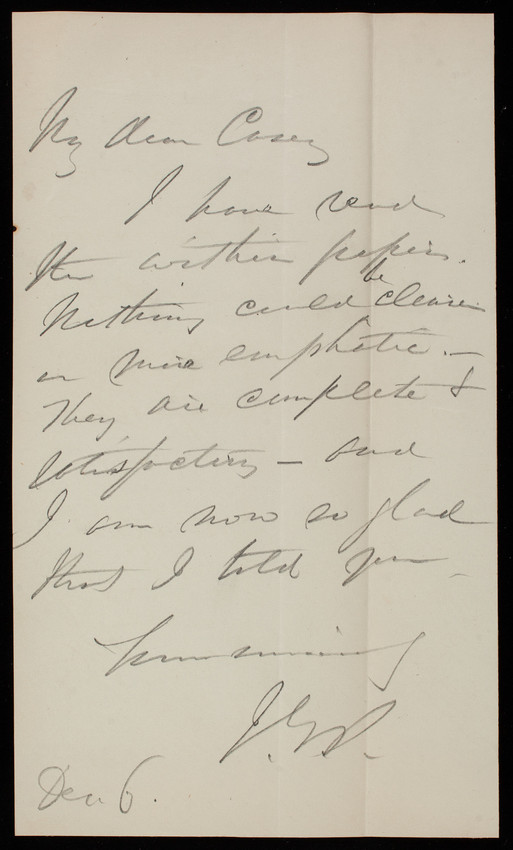 My dear Casey
I have read
the within papers.
Nothing could be clearer
or more emphatic. —
They are complete &
satisfactory — and
I am now so glad
that I told you
Yours sincerely
Dec. 6.